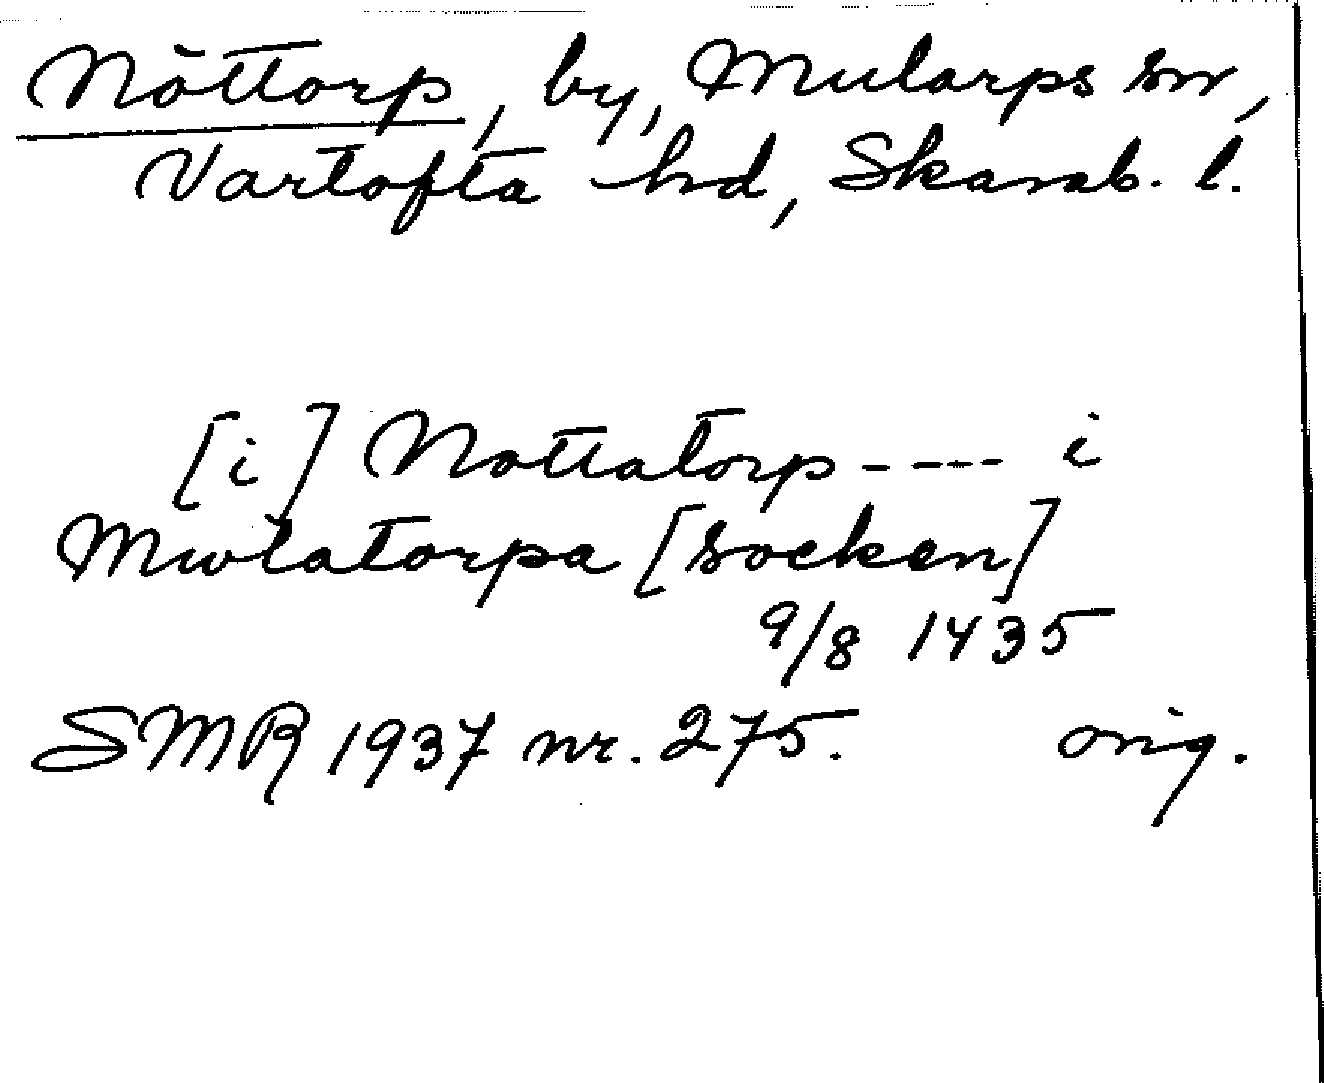 Nöttorp, by, Mularps sn,
Vartofta hd, Skarab. l.
[i] Nottatorp ---- i
Mwlatorpa [socken]
9/8 1435
SMR 1937 nr. 275. orig.